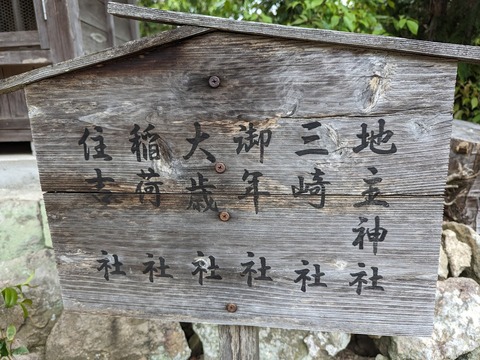 地主神社
三崎社
御年社
大歳社
稲荷社
住吉社